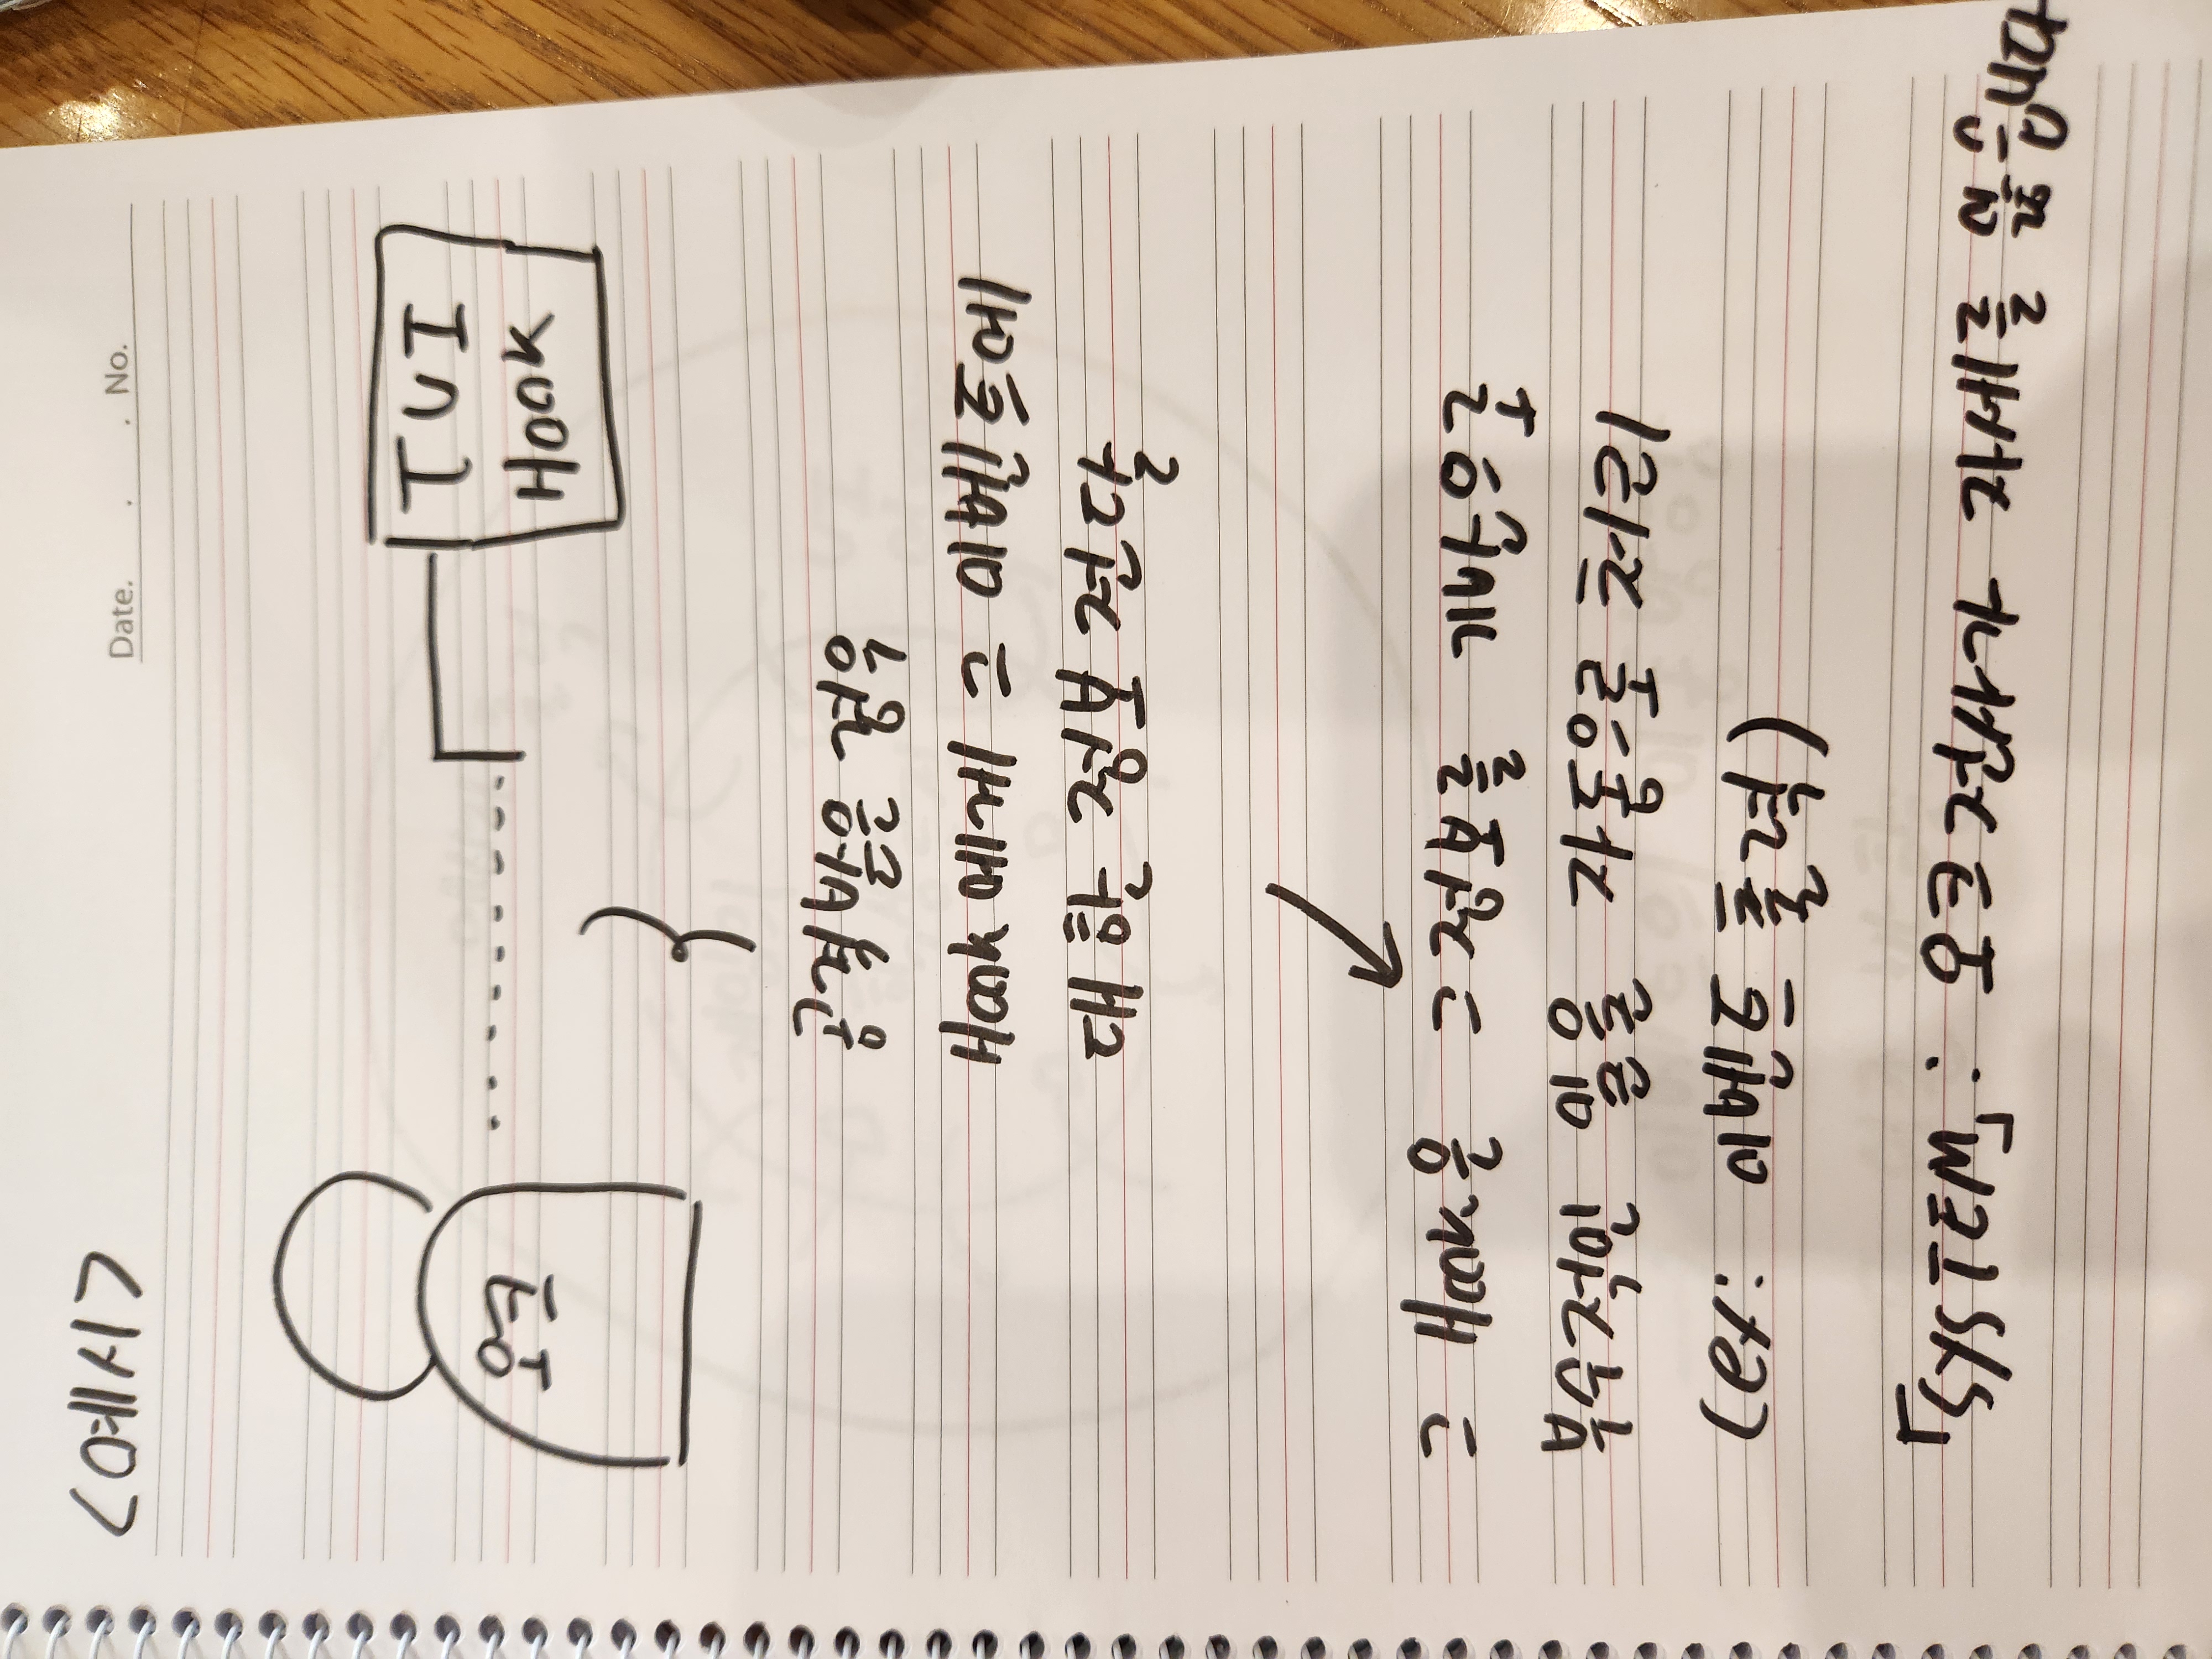 <예시>
Date. . . No.
오크
TUI
Hook
공격받은 경우
Hook에게 그 이벤트에
대한 정보 전달
그 Hook은 그 정보를 기반으로
부수적인 일을 자동으로 처리
(ex: 이벤트 출력)
「SYSTEM」: 오크 전사가 자세를 잃습니다